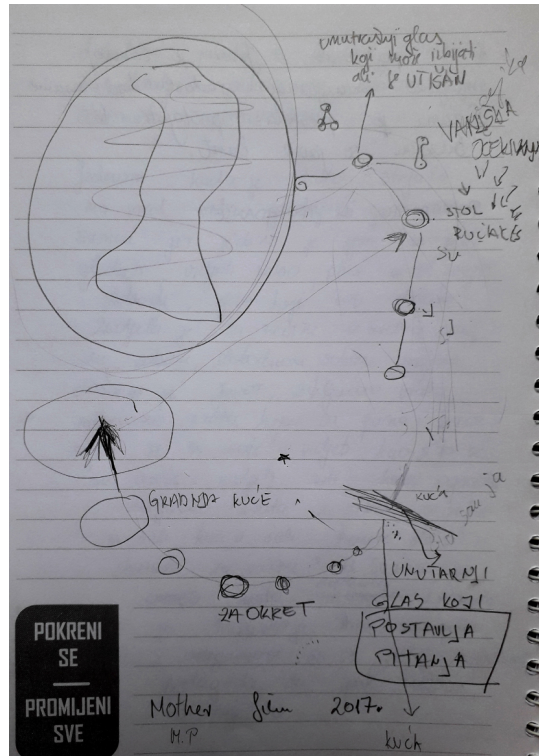 unutrašnji glas
koji može
ali je UTIŠAN
VANJSKA
OČEKIVANJA
STOL
RUČAK
SU
GRADNJA KUĆE
kuća
ja
ZAOKRET
UNUTARNJI
GLAS KOJI
POSTAVLJA
PITANJA
POKRENI
SE
PROMIJENI
SVE
Mother film 2017.
M.P
kuća